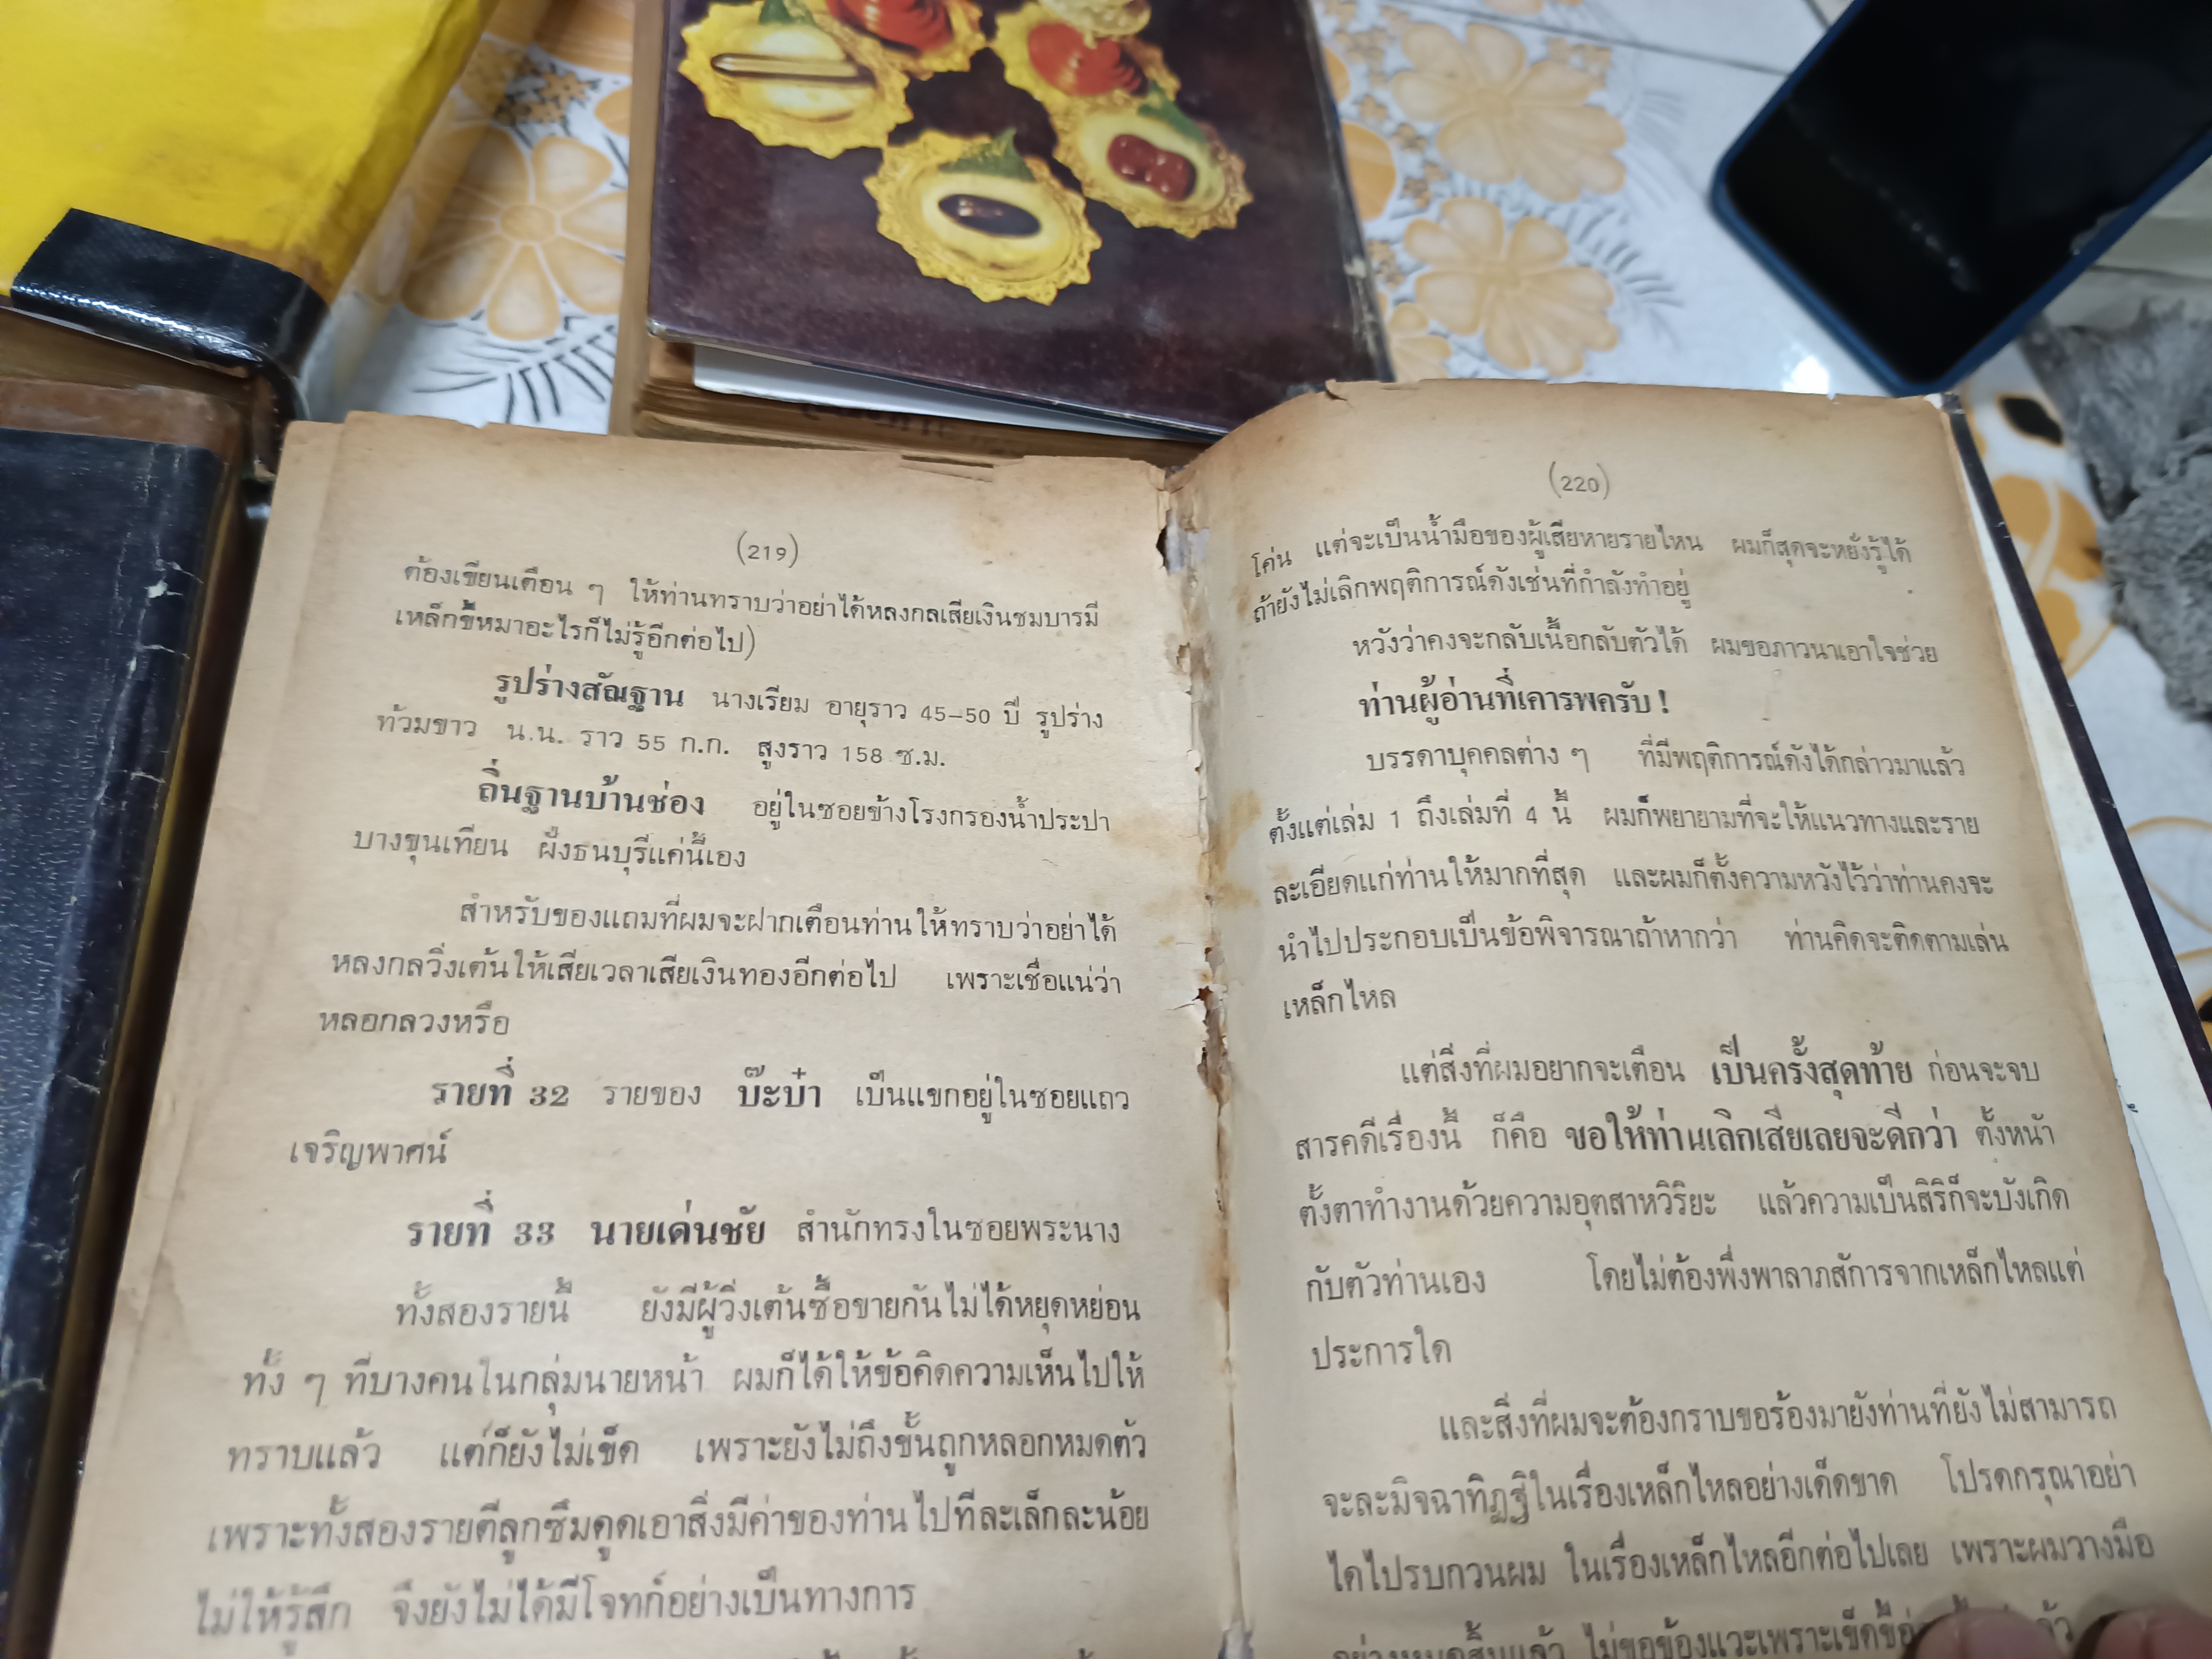 (219)
ต้องเขียนเตือน ๆ ให้ท่านทราบว่าอย่าได้หลงกลเสียเงินชมบารมี
เหล็กขี้หมาอะไรก็ไม่รู้อีกต่อไป)
รูปร่างสัณฐาน นางเรียม อายุราว 45-50 ปี รูปร่าง
ท้วมขาว น.น. ราว 55 ก.ก. สูงราว 158 ซ.ม.
ถิ่นฐานบ้านช่อง อยู่ในซอยข้างโรงกรองน้ำประปา
บางขุนเทียน ฝั่งธนบุรีแค่นี้เอง
สำหรับของแถมที่ผมจะฝากเตือนท่านให้ทราบว่าอย่าได้
หลงกลวิ่งเต้นให้เสียเวลาเสียเงินทองอีกต่อไป เพราะเชื่อแน่ว่า
หลอกลวงหรือ
รายที่ 32 รายของ บ๊ะบ๋า เป็นแขกอยู่ในซอยแถว
เจริญพาศน์
รายที่ 33 นายเด่นชัย สำนักทรงในซอยพระนาง
ทั้งสองรายนี้ ยังมีผู้วิ่งเต้นซื้อขายกันไม่ได้หยุดหย่อน
ทั้ง ๆ ที่บางคนในกลุ่มนายหน้า ผมก็ได้ให้ข้อคิดความเห็นไปให้
ทราบแล้ว แต่ก็ยังไม่เข็ด เพราะยังไม่ถึงขั้นถูกหลอกหมดตัว
เพราะทั้งสองรายตีลูกซึมดูดเอาสิ่งมีค่าของท่านไปทีละเล็กละน้อย
ไม่ให้รู้สึก จึงยังไม่ได้มีโจทก์อย่างเป็นทางการ
(220)
โค่น แต่จะเป็นน้ำมือของผู้เสียหายรายไหน ผมก็สุดจะหยั่งรู้ได้
ถ้ายังไม่เลิกพฤติการณ์ดังเช่นที่กำลังทำอยู่
หวังว่าคงจะกลับเนื้อกลับตัวได้ ผมขอภาวนาเอาใจช่วย
ท่านผู้อ่านที่เคารพครับ !
บรรดาบุคคลต่าง ๆ ที่มีพฤติการณ์ดังได้กล่าวมาแล้ว
ตั้งแต่เล่ม 1 ถึงเล่มที่ 4 นี้ ผมก็พยายามที่จะให้แนวทางและราย
ละเอียดแก่ท่านให้มากที่สุด และผมก็ตั้งความหวังไว้ว่าท่านคงจะ
นำไปประกอบเป็นข้อพิจารณาถ้าหากว่า ท่านคิดจะติดตามเล่น
เหล็กไหล
แต่สิ่งที่ผมอยากจะเตือน เป็นครั้งสุดท้าย ก่อนจะจบ
สารคดีเรื่องนี้ ก็คือ ขอให้ท่านเลิกเสียเลยจะดีกว่า ตั้งหน้า
ตั้งตาทำงานด้วยความอุตสาหวิริยะ แล้วความเป็นสิริก็จะบังเกิด
กับตัวท่านเอง โดยไม่ต้องพึ่งพาลาภสักการจากเหล็กไหลแต่
ประการใด
และสิ่งที่ผมจะต้องกราบขอร้องมายังท่านที่ยังไม่สามารถ
จะละมิจฉาทิฏฐิในเรื่องเหล็กไหลอย่างเด็ดขาด โปรดกรุณาอย่า
ไดไปรบกวนผม ในเรื่องเหล็กไหลอีกต่อไปเลย เพราะผมวางมือ
อย่างหมดสิ้นแล้ว ไม่ขอข้องแวะเพราะเข็ดขี้